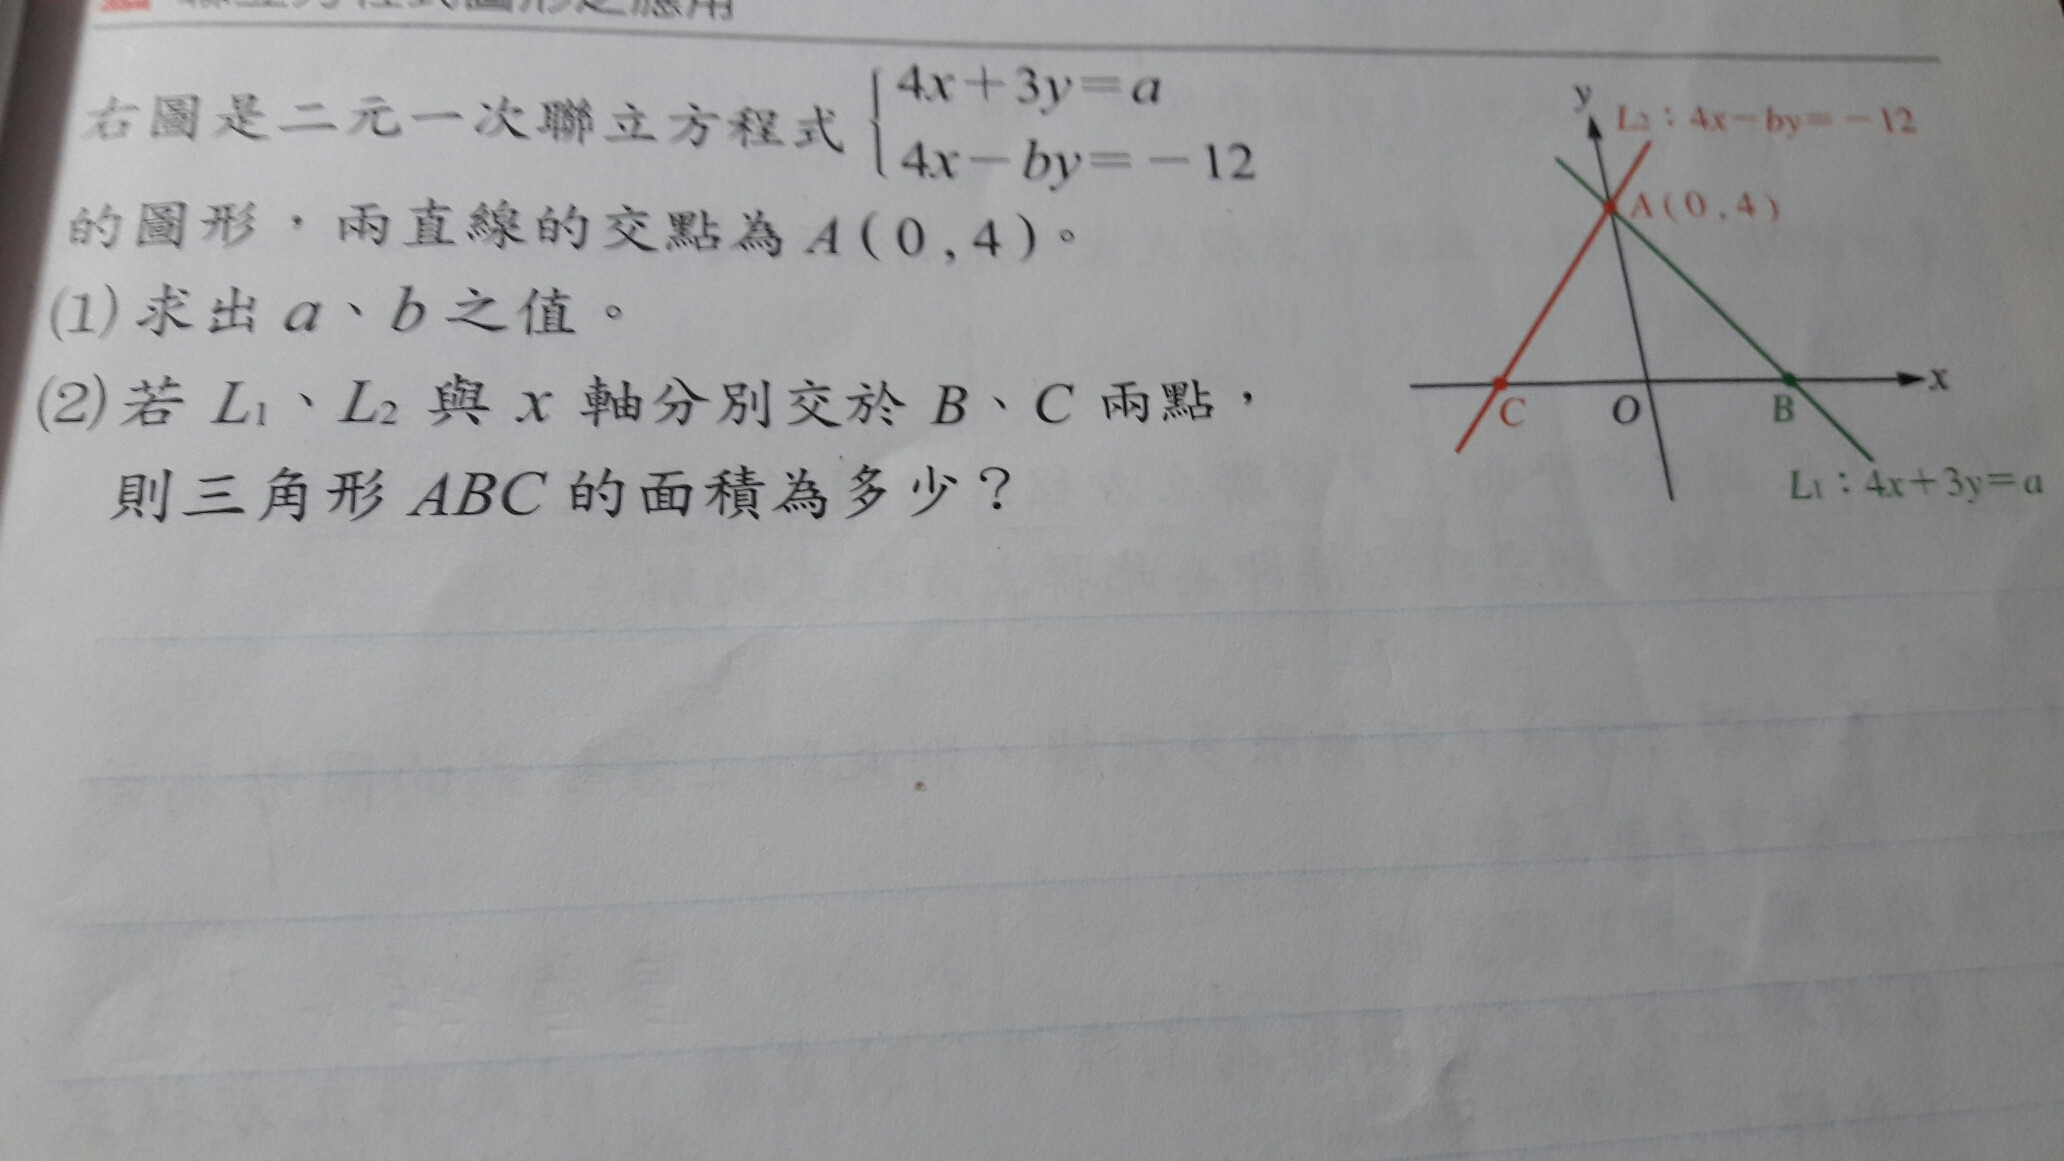 聯立方程式圖形之應用
右圖是二元一次聯立方程式 { 4x+3y=a
4x-by=-12
的圖形，兩直線的交點為 A(0,4)。
(1) 求出 a、b 之值。
(2) 若 L1、L2 與 x 軸分別交於 B、C 兩點，
則三角形 ABC 的面積為多少？
y
L2：4x-by=-12
A(0,4)
x
C
O
B
L1：4x+3y=a